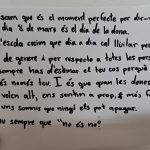 que és el moment perfecte per dir-
dia 8 de març és el dia de la dona.
l'escola creiem que dia a dia cal lluitar per
de gènere i per respecte a totes les perso
sempre has d'estimar el teu cos perquè
és només teu. I és que quan les dones
volen alt, ens sentim a prop, & més f
uns somnis que ningú els pot apagar.
u sempre que "no és no"